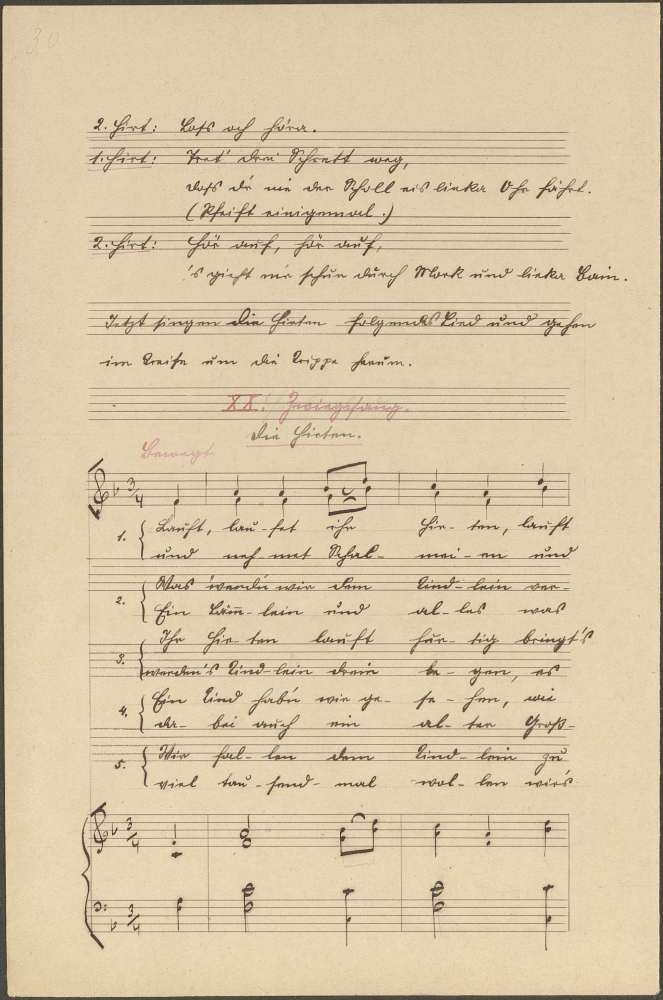 30
2. Hirt: Lofs och höra.
1. Hirt: Tret' drei Schrett weg,
dofs dr nie der Scholl eis linka Ohr fährt.
(Pfeift einigemal.)
2. Hirt: Hör auf, hör auf,
's gieht mir schun durch Mork und linka Bain.
Jetzt singen die Hirten folgendes Lied und gehen
im Kreise um die Krippe herum.
XX. Zwiegesang.
Die Hirten.
Bewegt
3/4
1. { Lauft, lau-fet ihr Hir-ten, lauft
und neh-met Schal-mei-en und
2. { Was werdn wir dem Kind-lein ver-
Ein Lämm-lein und al-les was
3. { Ihr Hir-ten lauft hur-tig bringt's
werden's Kind-lein drein le-gen, es
4. { Ein Kind habn wir ge-se-hen, wie
da-bei auch ein al-ter Groß-
5. { Wir fal-len dem Kind-lein zu
viel tau-send-mal wol-len wir's
3/4
3/4